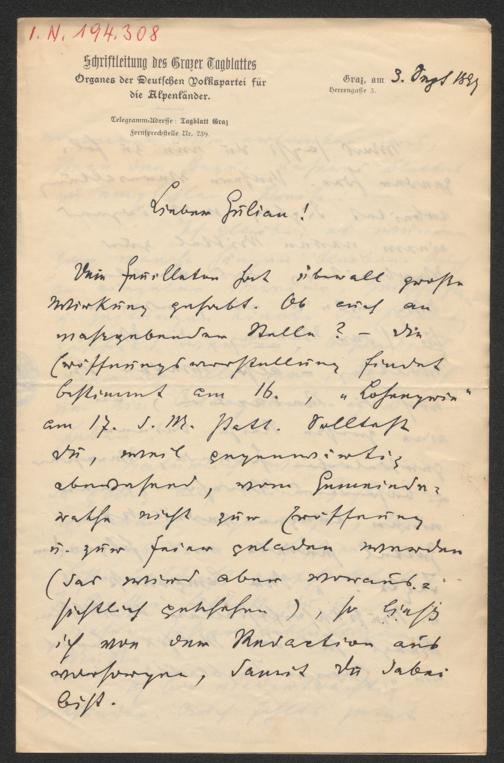 I. N. 194.308
Schriftleitung des Grazer Tagblattes
Organes der Deutschen Volkspartei für
die Alpenländer.
Graz, am 3. Sept 1899
Herrengasse 3.
Telegramm-Adresse: Tagblatt Graz
Fernsprechstelle Nr. 239.
Lieber Gülian!
Dein Feuilleton hat überall große
Wirkung gehabt. Ob auch an
massgebender Stelle? – Die
Eröffnungsvorstellung findet
bestimmt am 16., „Lohengrin“
am 17. d. M. statt. Solltest
du, weil gegenwärtig
abwesend, vom Gemeinde-
rathe nicht zur Eröffnung
u. zur Feier geladen werden
(das wird aber voraus-
sichtlich geschehen), so ließ
ich von der Redaction aus
vorsorgen, damit du dabei
bist.